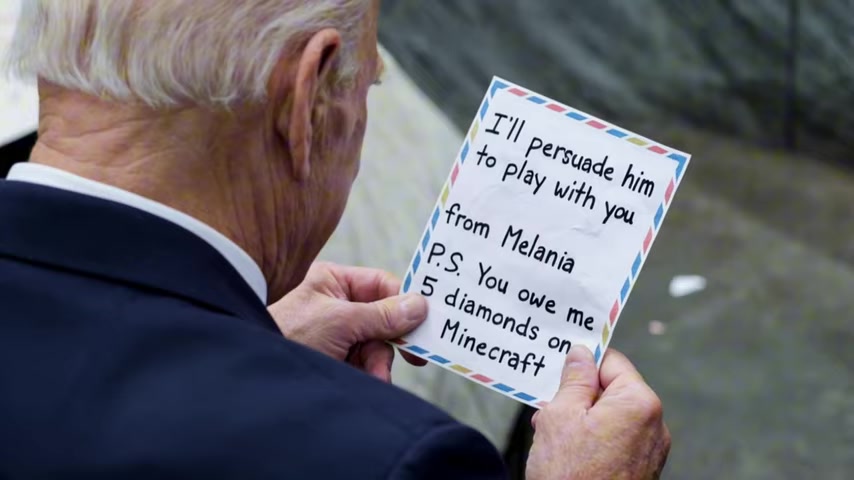 I'll persuade him
to play with you
from Melania
P.S. You owe me
5 diamonds on
Minecraft